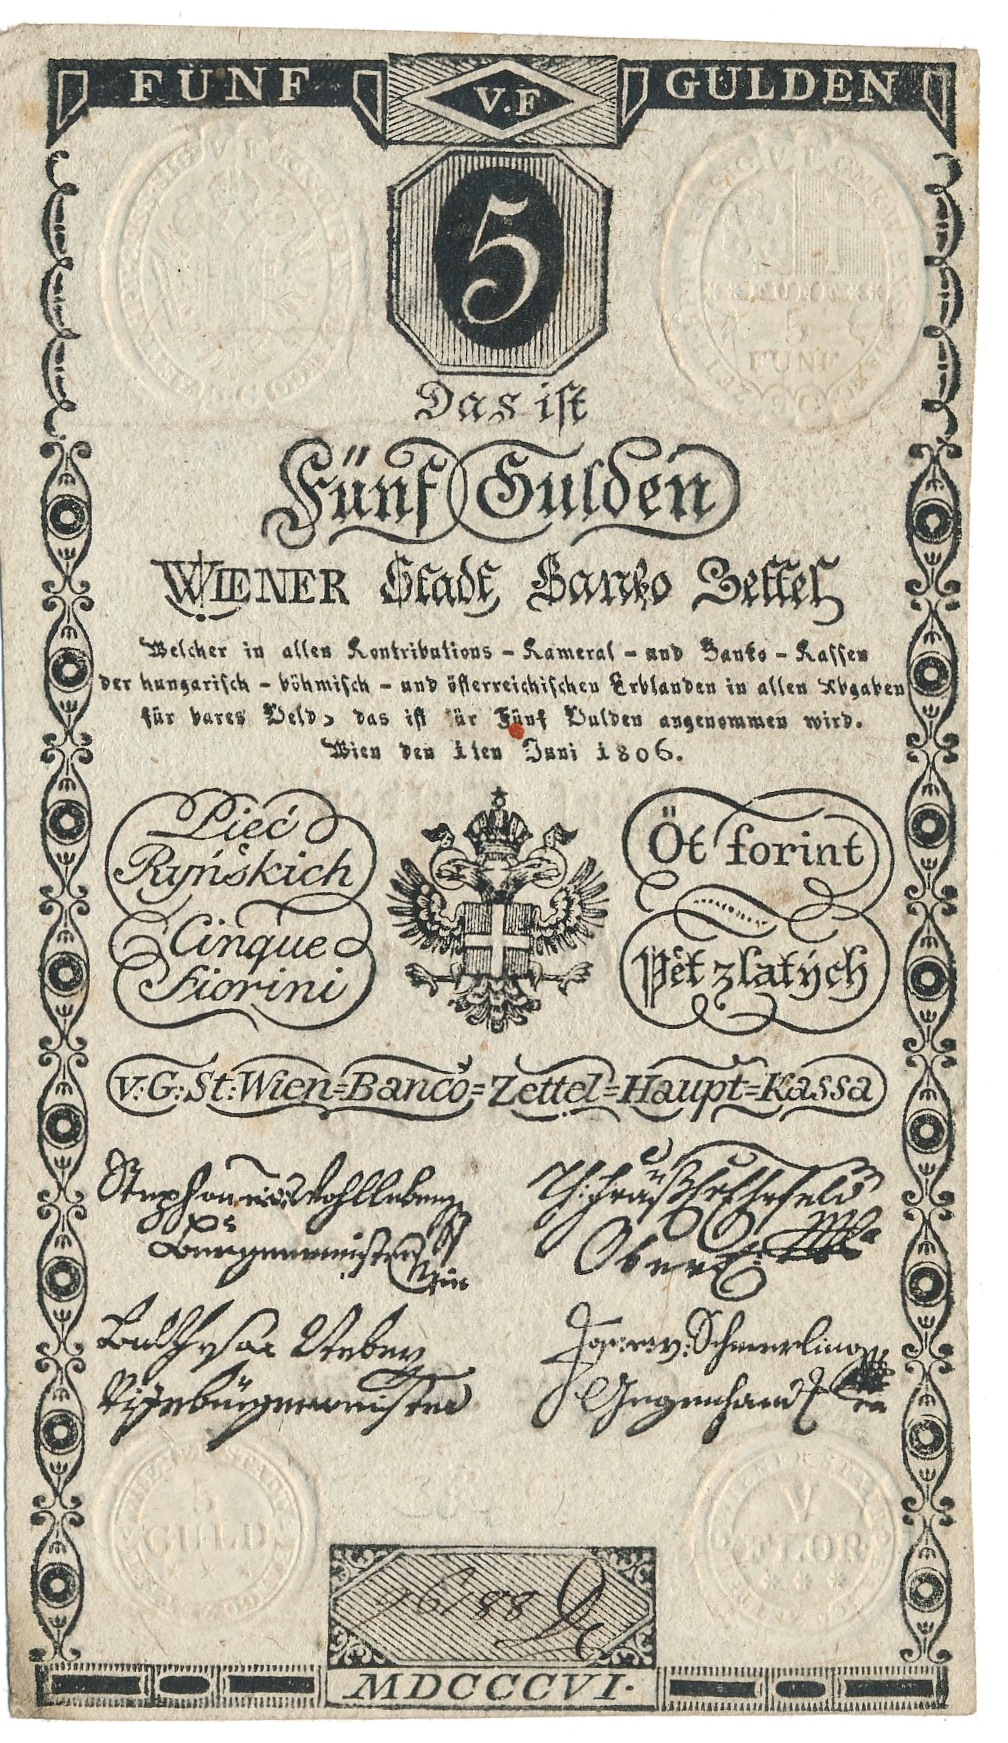 FÜNF V.F GULDEN
5
FUNF
5
FUNF
Das ist
Fünf Gulden
WIENER Stadt Banko Zettel
Welcher in allen Kontributions - Kameral - und Banko - Kassen
der hungarisch - böhmisch - und österreichischen Erblanden in allen Abgaben
für bares Geld, das ist für Fünf Gulden angenommen wird.
Wien den 1ten Juni 1806.
Pięć
Ryńskich
Cinque
Fiorini
Öt forint
Pět zlatých
V: G: St: Wien=Banco=Zettel=Haupt=Kassa
Stephan Wohlleben
Burgermeister
Balthasar Weber
Vizebürgermeister
v: Schmerling
Gegenhand
5
GULD
V
FLOR
MDCCCVI.